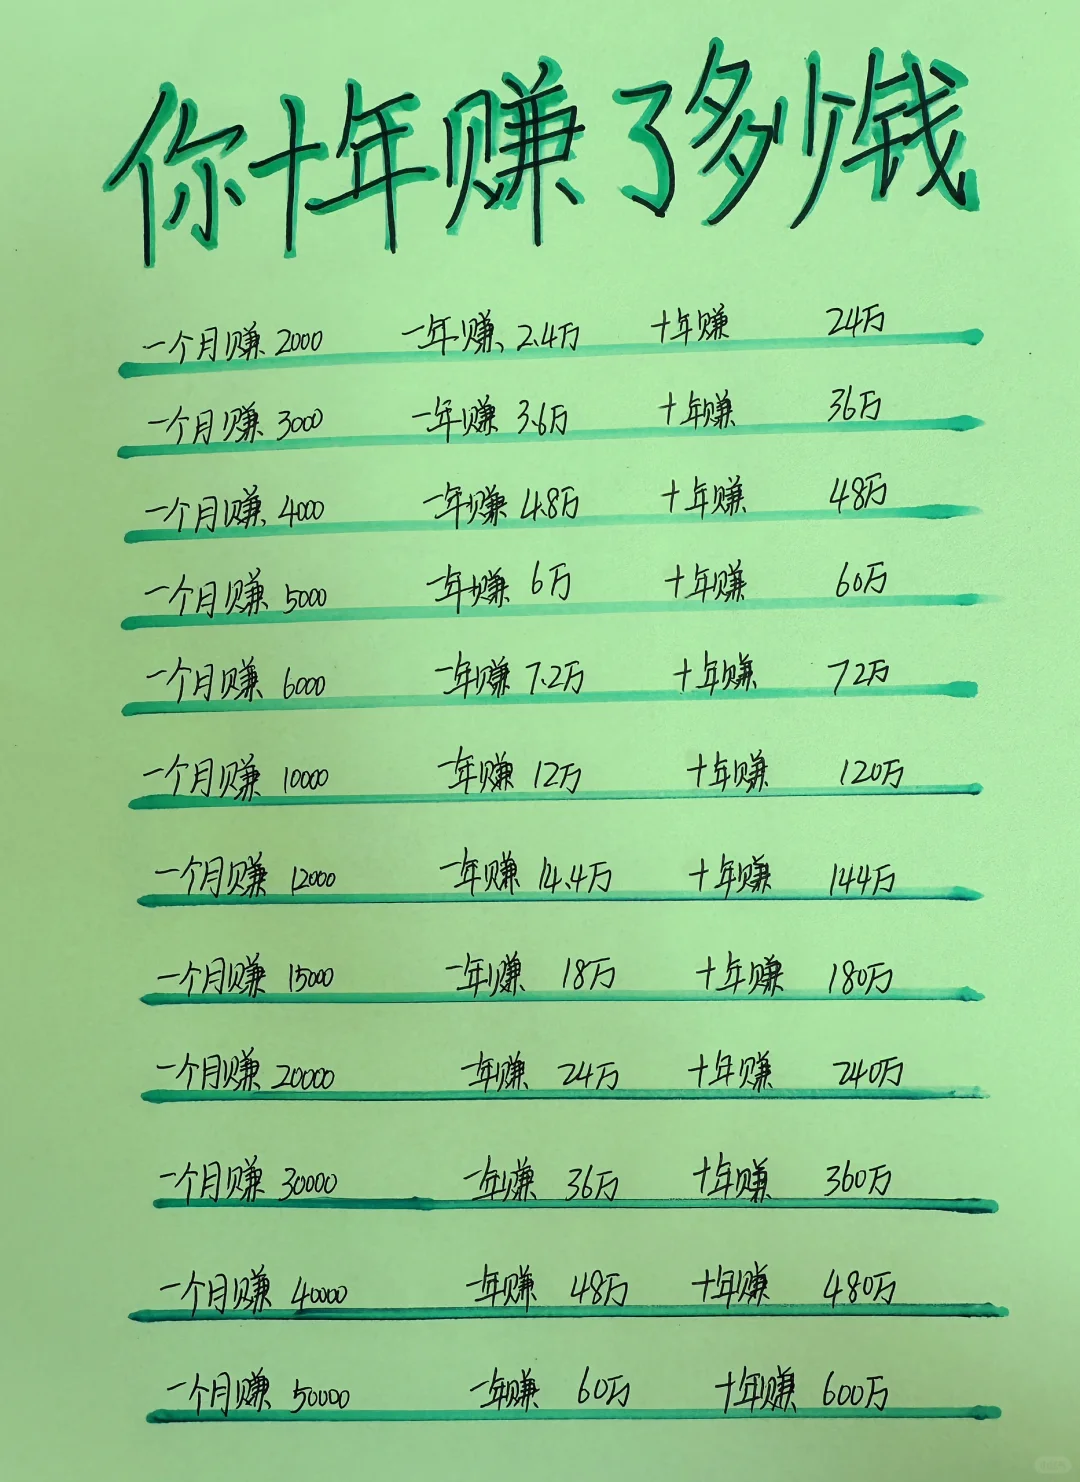 你十年赚了多少钱
一个月赚 2000 一年赚 2.4万 十年赚 24万
一个月赚 3000 一年赚 3.6万 十年赚 36万
一个月赚 4000 一年赚 4.8万 十年赚 48万
一个月赚 5000 一年赚 6万 十年赚 60万
一个月赚 6000 一年赚 7.2万 十年赚 72万
一个月赚 10000 一年赚 12万 十年赚 120万
一个月赚 12000 一年赚 14.4万 十年赚 144万
一个月赚 15000 一年赚 18万 十年赚 180万
一个月赚 20000 一年赚 24万 十年赚 240万
一个月赚 30000 一年赚 36万 十年赚 360万
一个月赚 40000 一年赚 48万 十年赚 480万
一个月赚 50000 一年赚 60万 十年赚 600万